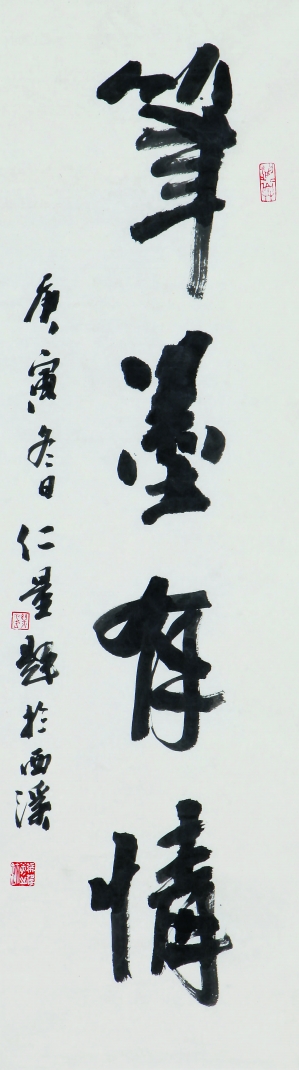 筆墨有情
庚寅冬日仁量題於西溪